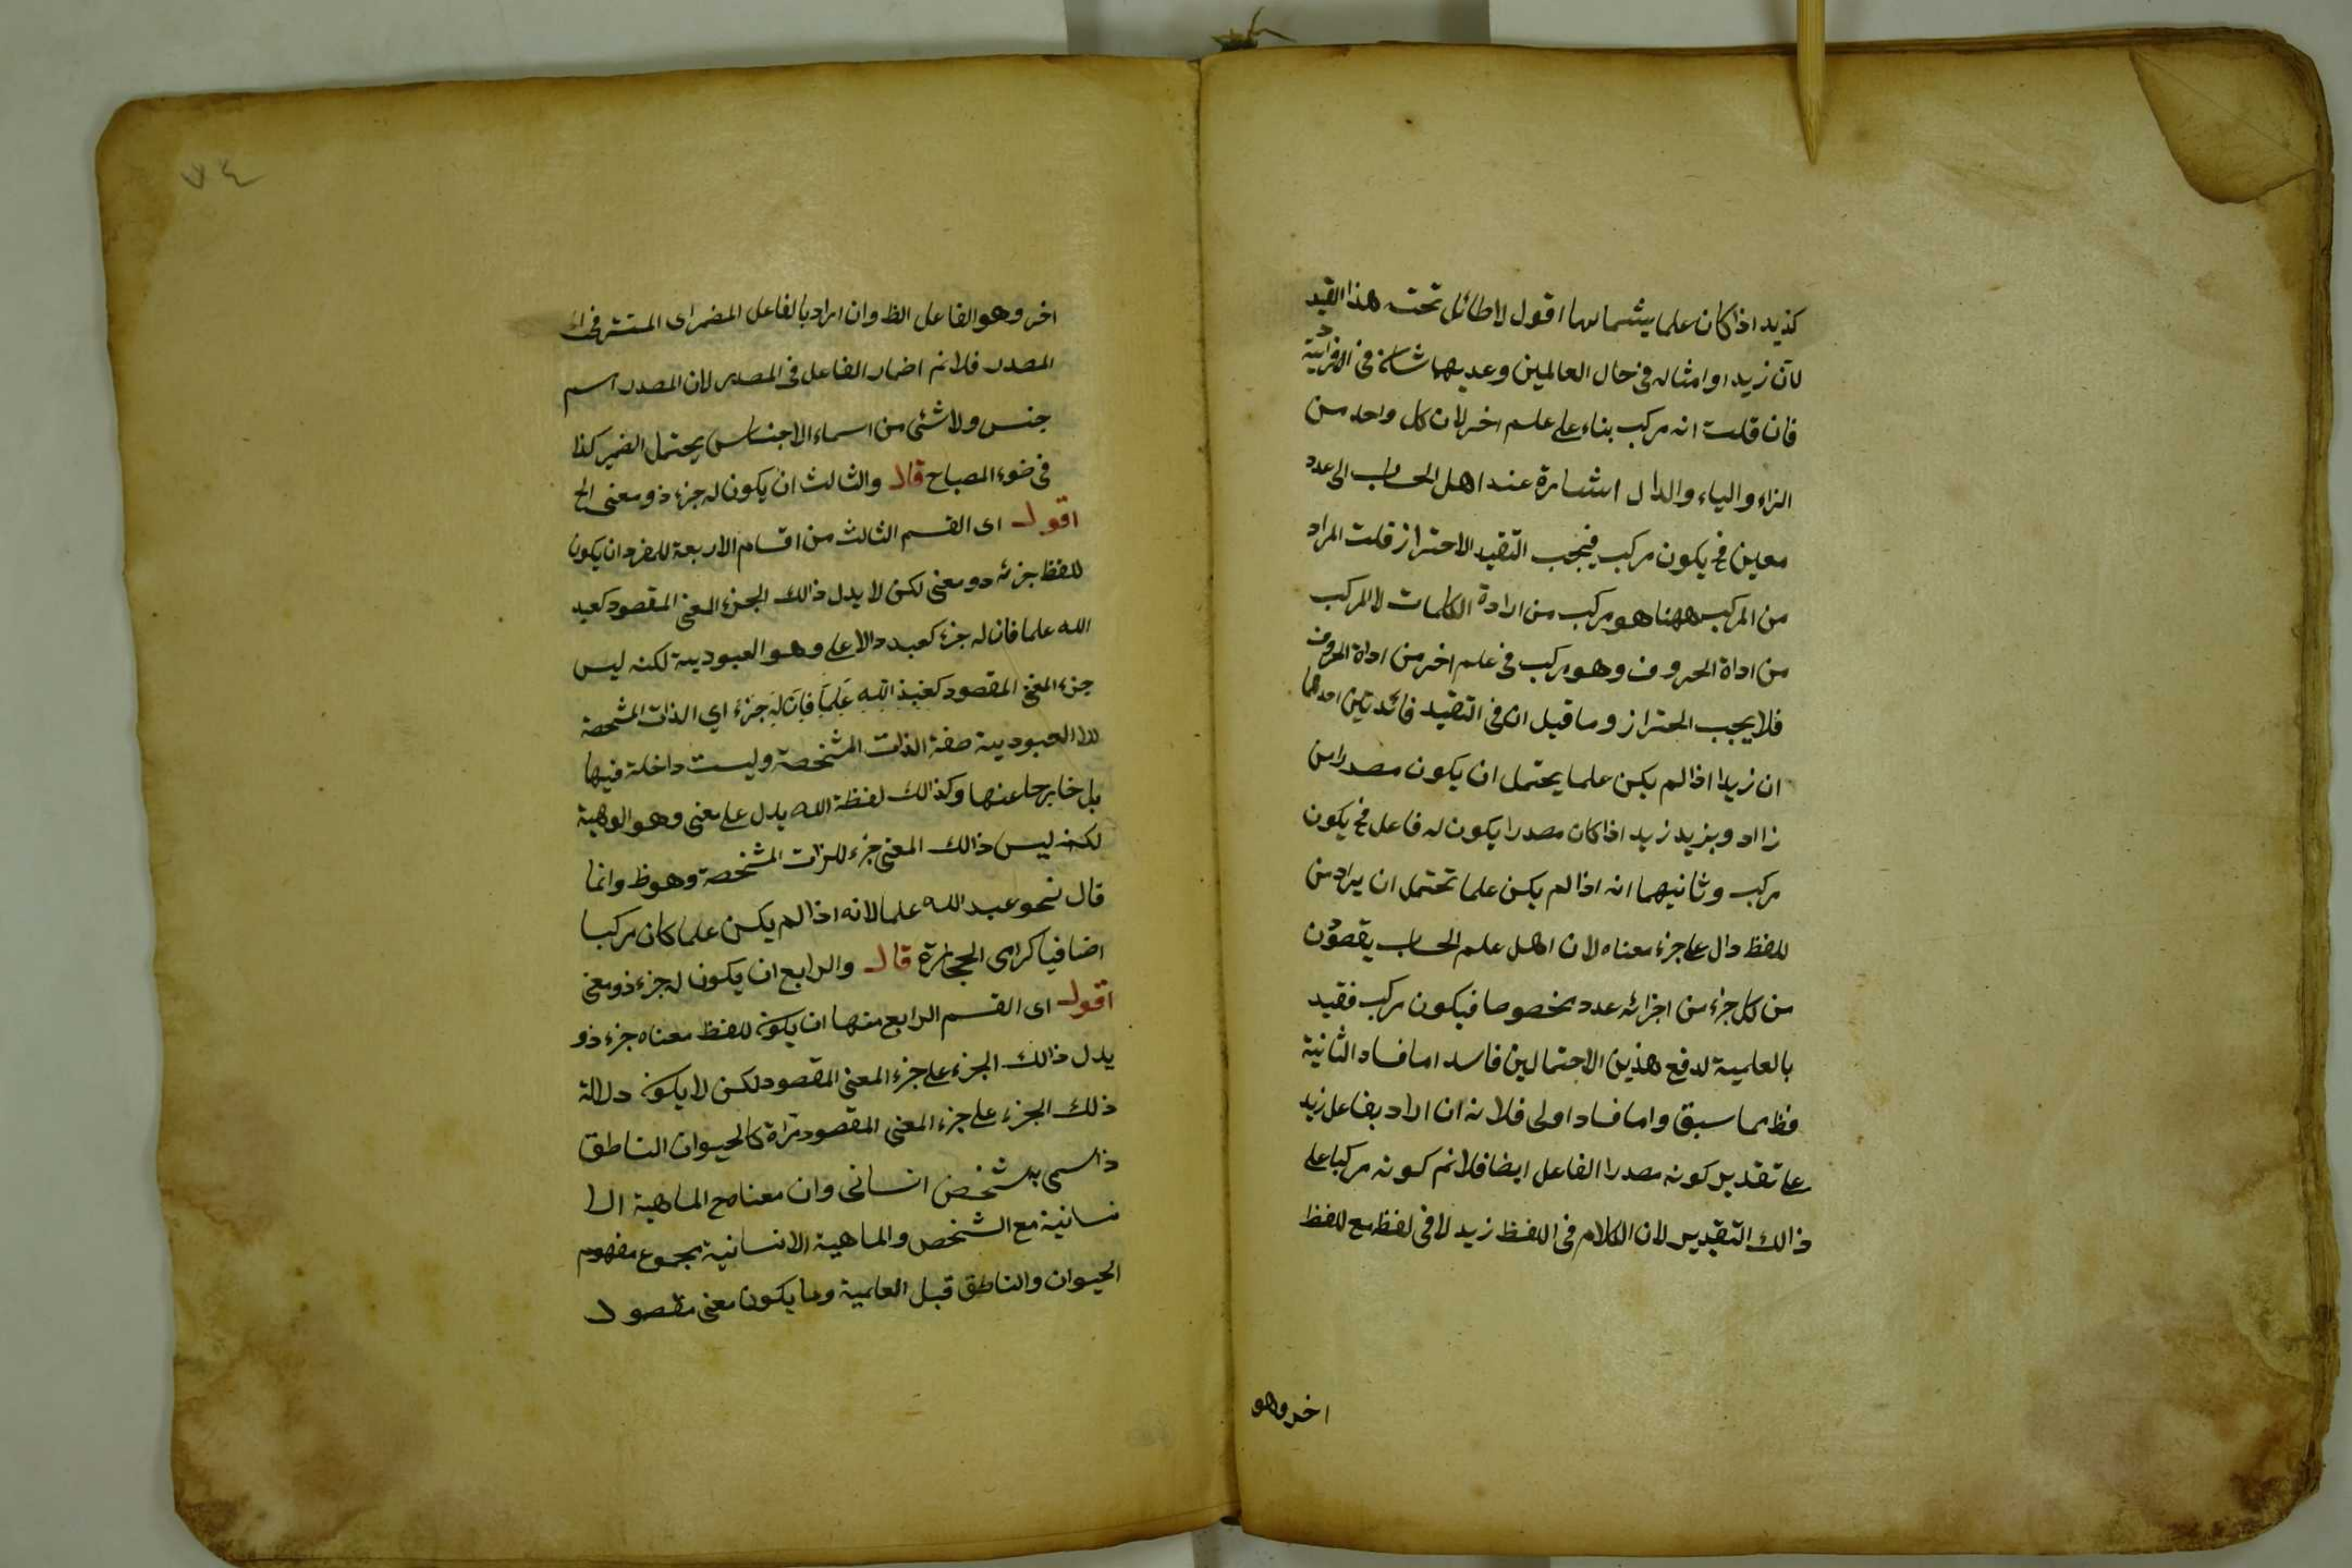 كذيد اذا كان علما يشماسها اقول لا طائل تحت هذا القيد
لان زيد او امثاله فى حال العالمين وعديها شان فى الافرادية
فان قلت انه مركب بناء على علم اخر لان كل واحد من
الزاء والياء والدال اشارة عند اهل الحساب الى عدد
معين فح يكون مركب فيجب التقيد الاحتراز قلت المراد
من المركب ههنا هو مركب من ارادة الكلمات لا المركب
من اداة الحروف وهو مركب فى علم اخر من اداة الحروف
فلا يجب الحتراز وما قيل ان فى التقيد فائدتين احدهما
ان زيدا اذا لم يكن علما يحتمل ان يكون مصدرا من
زااد ويزيد زيد اذا كان مصدرا يكون له فاعل فح يكون
مركب وثانيهما انه اذا لم يكن علما تحتمل ان يراد من
للفظ دال على جزء معناه لان اهل علم الحساب يقصدون
من كل جزء من اجزائه عدد مخصوصا فيكون مركب فقيد
بالعلمية لدفع هذين الاحتمالين فاسد اما فساد الثانية
فظ مما سبق واما فساد اولى فلانه ان اراد بفاعل زيد
على تقدير كونه مصدرا الفاعل ايضا فلانم كونه مركبا على
ذالك التقدير لان الكلام فى اللفظ زيد لا فى لفظ مع للفظ
اخر وهو
٧٤
اخر وهو الفاعل الظ وان اراد بالفاعل المضمر اى المستتر فى
المصدر فلانم اضمار الفاعل فى المصدر لان المصدر اسم
جنس ولا شئى من اسماء الاجناس يحتمل الضمير كذا
فى ضوء المصباح قال والثالث ان يكون له جزء ذو معنى الخ
اقول اى القسم الثالث من اقسام الاربعة للمفرد ان يكون
للفظ جزئه ذو معنى لكن لا يدل ذالك الجزء المعنى المقصود كعبد
الله علما فان له جزء كعبد دالا على وهو العبوديية لكنه ليس
جزء المعنى المقصود كعَبد الله عَلَمًا فَاِنَ لَه جَزْء اي الذات المشخصة
لان العبوديية صفة الذات المشخصة وليست داخلة فيها
بل خارجا عنها وكذالك لفظة الله يدل على معنى وهو الوهية
لكنه ليس ذالك المعنى جزء للذات المشخصة وهو ظ وانما
قال نحو عبد الله علما لانه اذا لم يكن علما كان مركبا
اضافيا كرامى الحجارة قال والرابع ان يكون له جزء ذو معنى
اقول اى القسم الرابع منها ان يكون للفظ معناه جزء ذو
يدل ذالك الجزء على جزء المعنى المقصود لكن لا يكون دلالة
ذلك الجزء على جزء المعنى المقصود مرادة كالحيوان الناطق
ذا سمى به شخض انسانى وان معناه ح الماهية الا
نسانية مع الشخص والماهية الانسانية مجموع مفهوم
الحيوان والناطق قبل العلمية وما يكون معنى مقصود